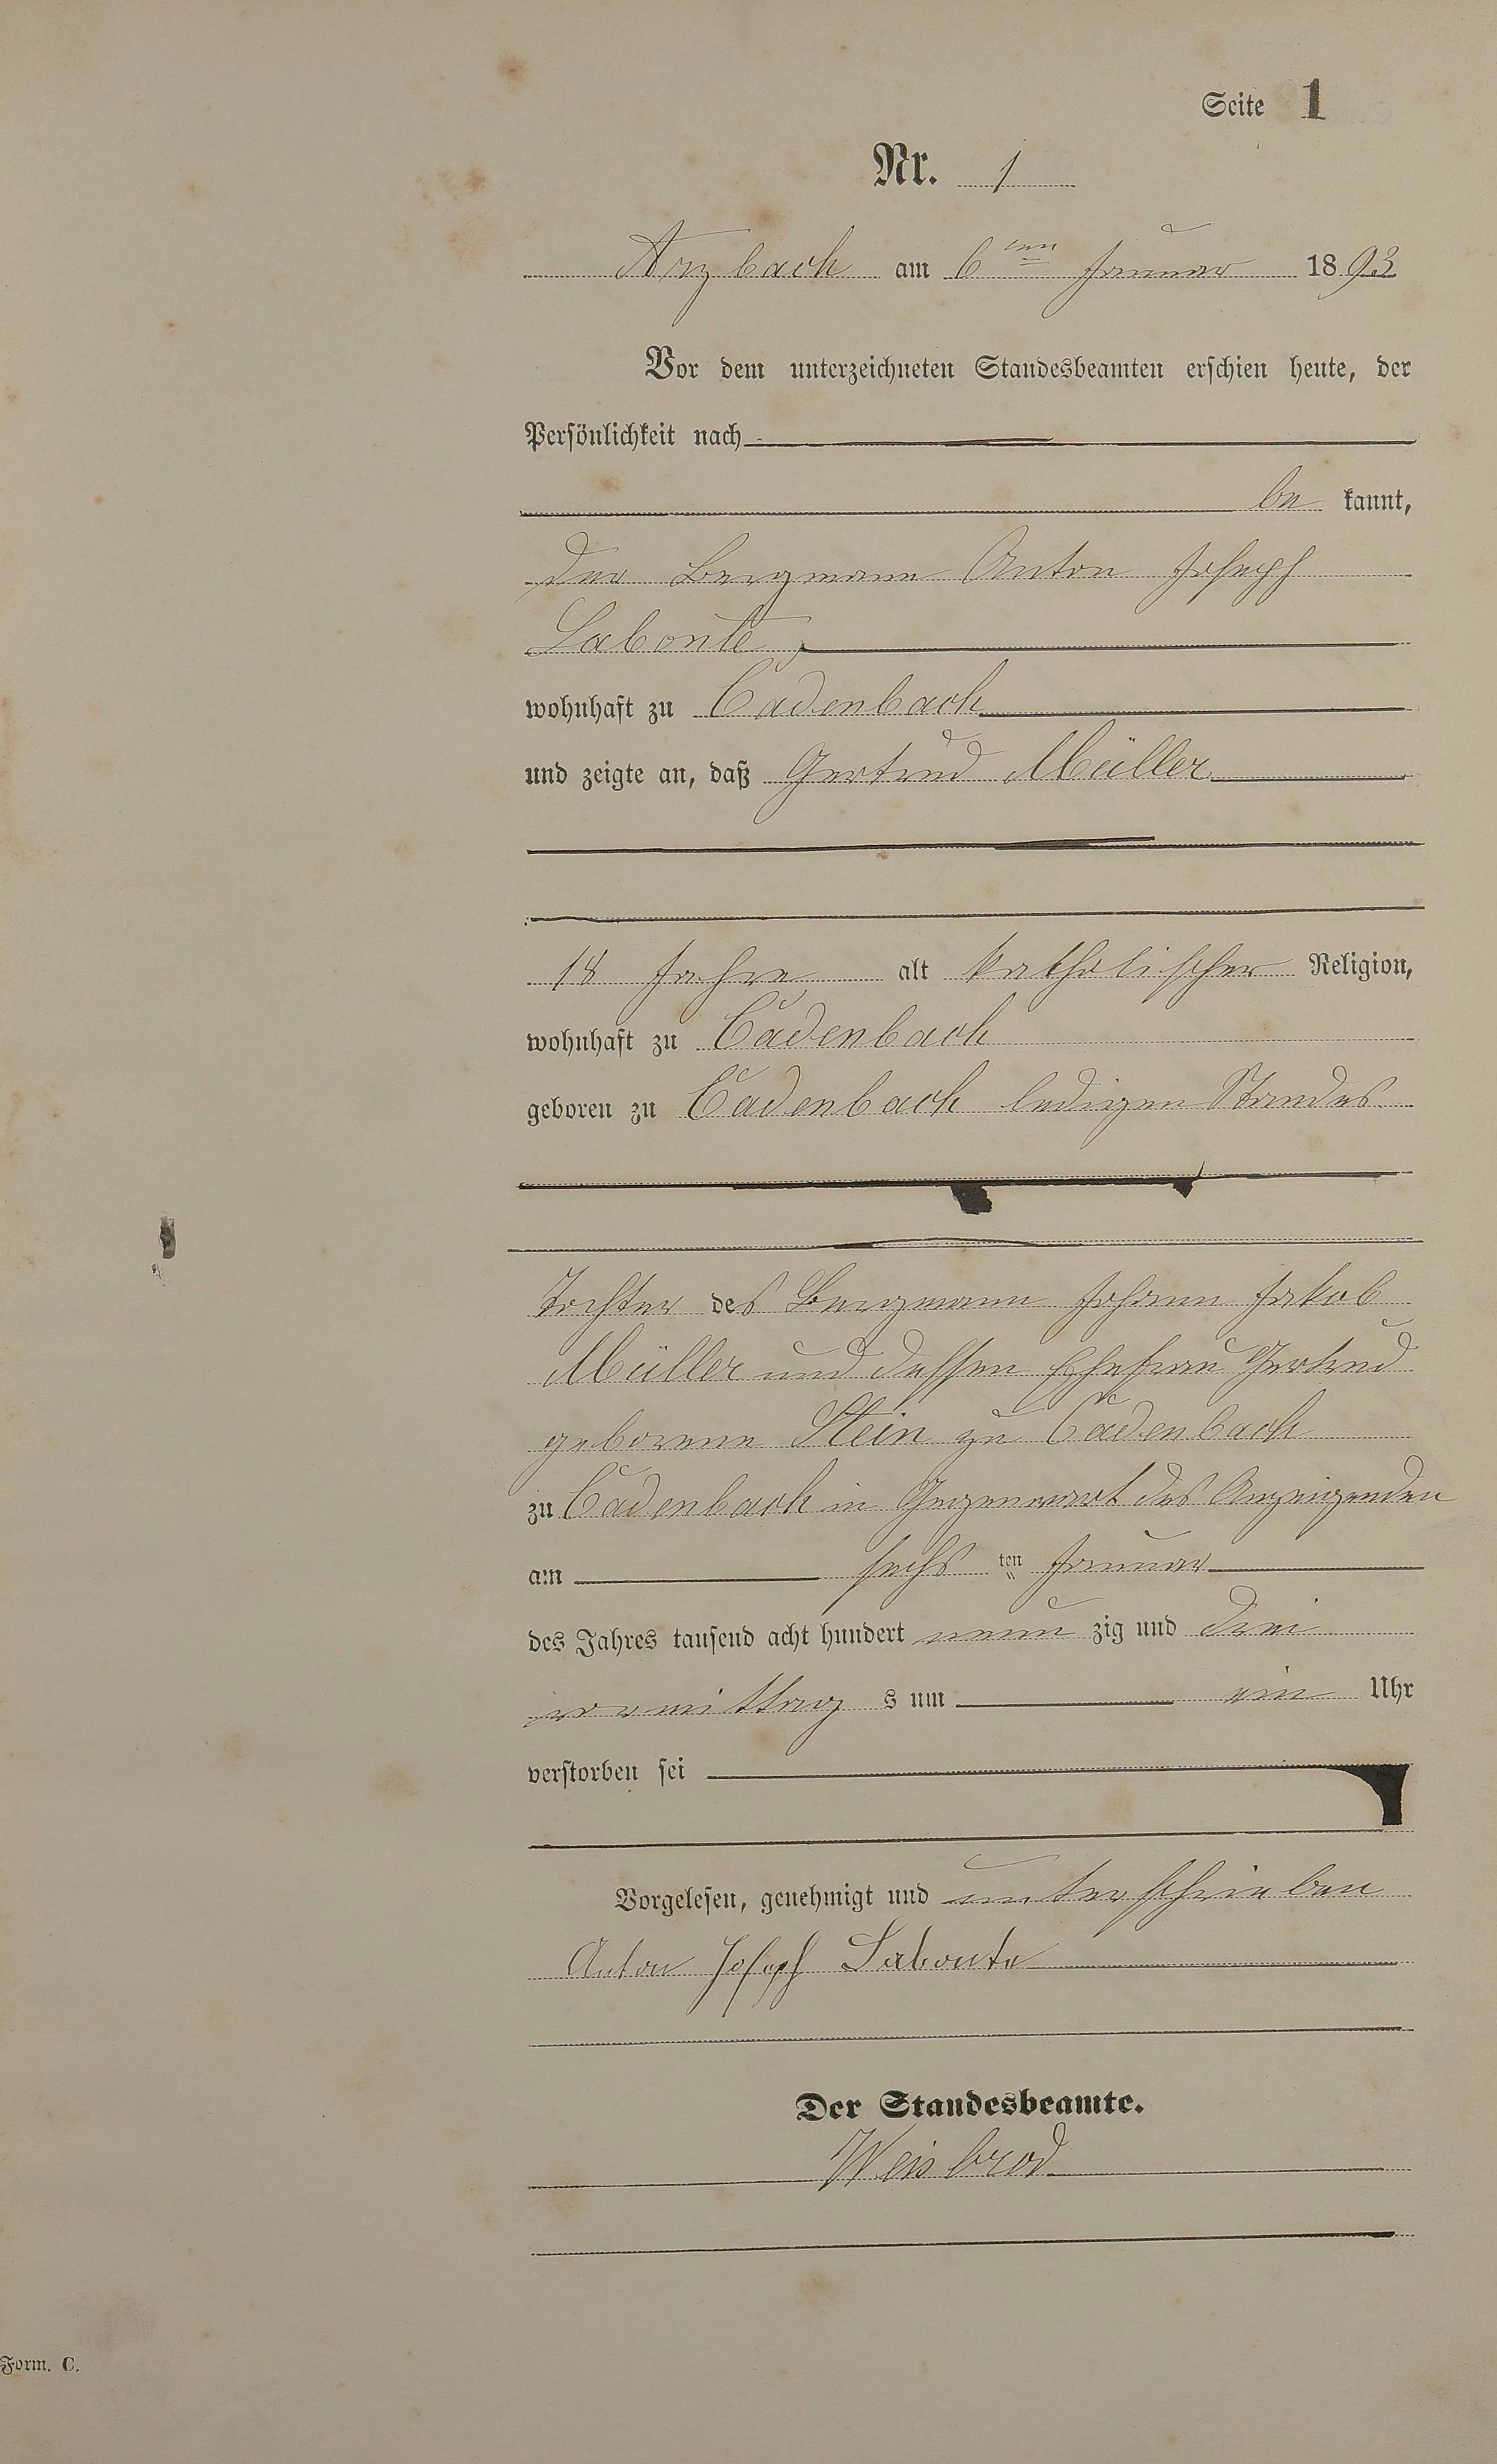 Seite 1
Nr. 1
Arzbach am 6ten Januar 1893
Vor dem unterzeichneten Standesbeamten erschien heute, der
Persönlichkeit nach
be kannt,
der Bergmann Anton Joseph
Labonté,
wohnhaft zu Cadenbach
und zeigte an, daß Gertrud Müller
18 Jahre alt katholischer Religion,
wohnhaft zu Cadenbach
geboren zu Cadenbach ledigen Standes
Tochter des Bergmann Johann Jakob
Müller und dessen Ehefrau Gertrud
geborene Stein zu Cadenbach
zu Cadenbach in Gegenwart des Anzeigenden
am sechs ten Januar
des Jahres tausend acht hundert neun zig und drei
vormittag s um ein Uhr
verstorben sei
Vorgelesen, genehmigt und unterschrieben
Anton Joseph Labonte
Der Standesbeamte.
Weisbrod
Form. C.